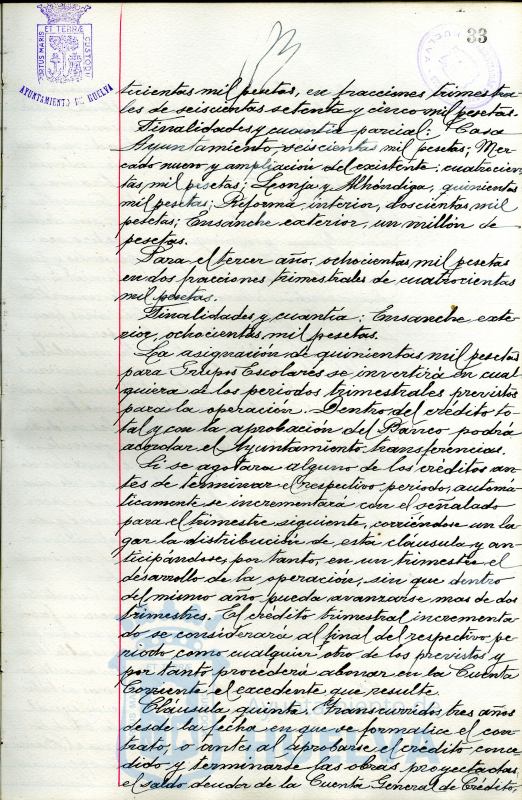 33
ET TERRÆ
PORTUS MARIS
CUSTODIA
AYUNTAMIENTO DE HUELVA
ticientas mil pesetas, en fracciones trimestra-
les de seiscientas setenta y cinco mil pesetas.
Finalidades y cuantía parcial: Casa
Ayuntamiento, seiscientas mil pesetas; Mer-
cado nuevo y ampliación del existente: cuatrocien-
tas mil pesetas; Leonja y Alhóndiga, quinientas
mil pesetas; Reforma interior, doscientas mil
pesetas; Ensanche exterior, un millón de
pesetas.
Para el tercer año, ochocientas mil pesetas
en dos fracciones trimestrales de cuatrocientas
mil pesetas.
Finalidades y cuantía: Ensanche exte-
rior, ochocientas mil pesetas.
La asignación de quinientas mil pesetas
para Grupos Escolares se invertirá en cual-
quiera de los periodos trimestrales previstos
para la operación. Dentro del crédito to-
tal y con la aprobación del Banco podrá
acordar el Ayuntamiento transferencias.
Si se agotara alguno de los créditos an-
tes de terminar el respectivo periodo, automá-
ticamente se incrementará con el señalado
para el trimestre siguiente, corriéndose un lu-
gar la distribución de esta cláusula y an-
ticipándose, por tanto, en un trimestre el
desarrollo de la operación, sin que dentro
del mismo año pueda avanzarse mas de dos
trimestres. El crédito trimestral incrementa-
do se considerará al final del respectivo pe-
riodo como cualquier otro de los previstos y
por tanto procederá abonar en la Cuenta
Corriente el excedente que resulte.
Cláusula quinta. Transcurridos tres años
desde la fecha en que se formalice el con-
trato, o antes al aprobarse el crédito conce-
dido y terminarse las obras proyectadas,
el saldo deudor de la Cuenta General de Crédito,
Ayuntamiento de
HUELVA